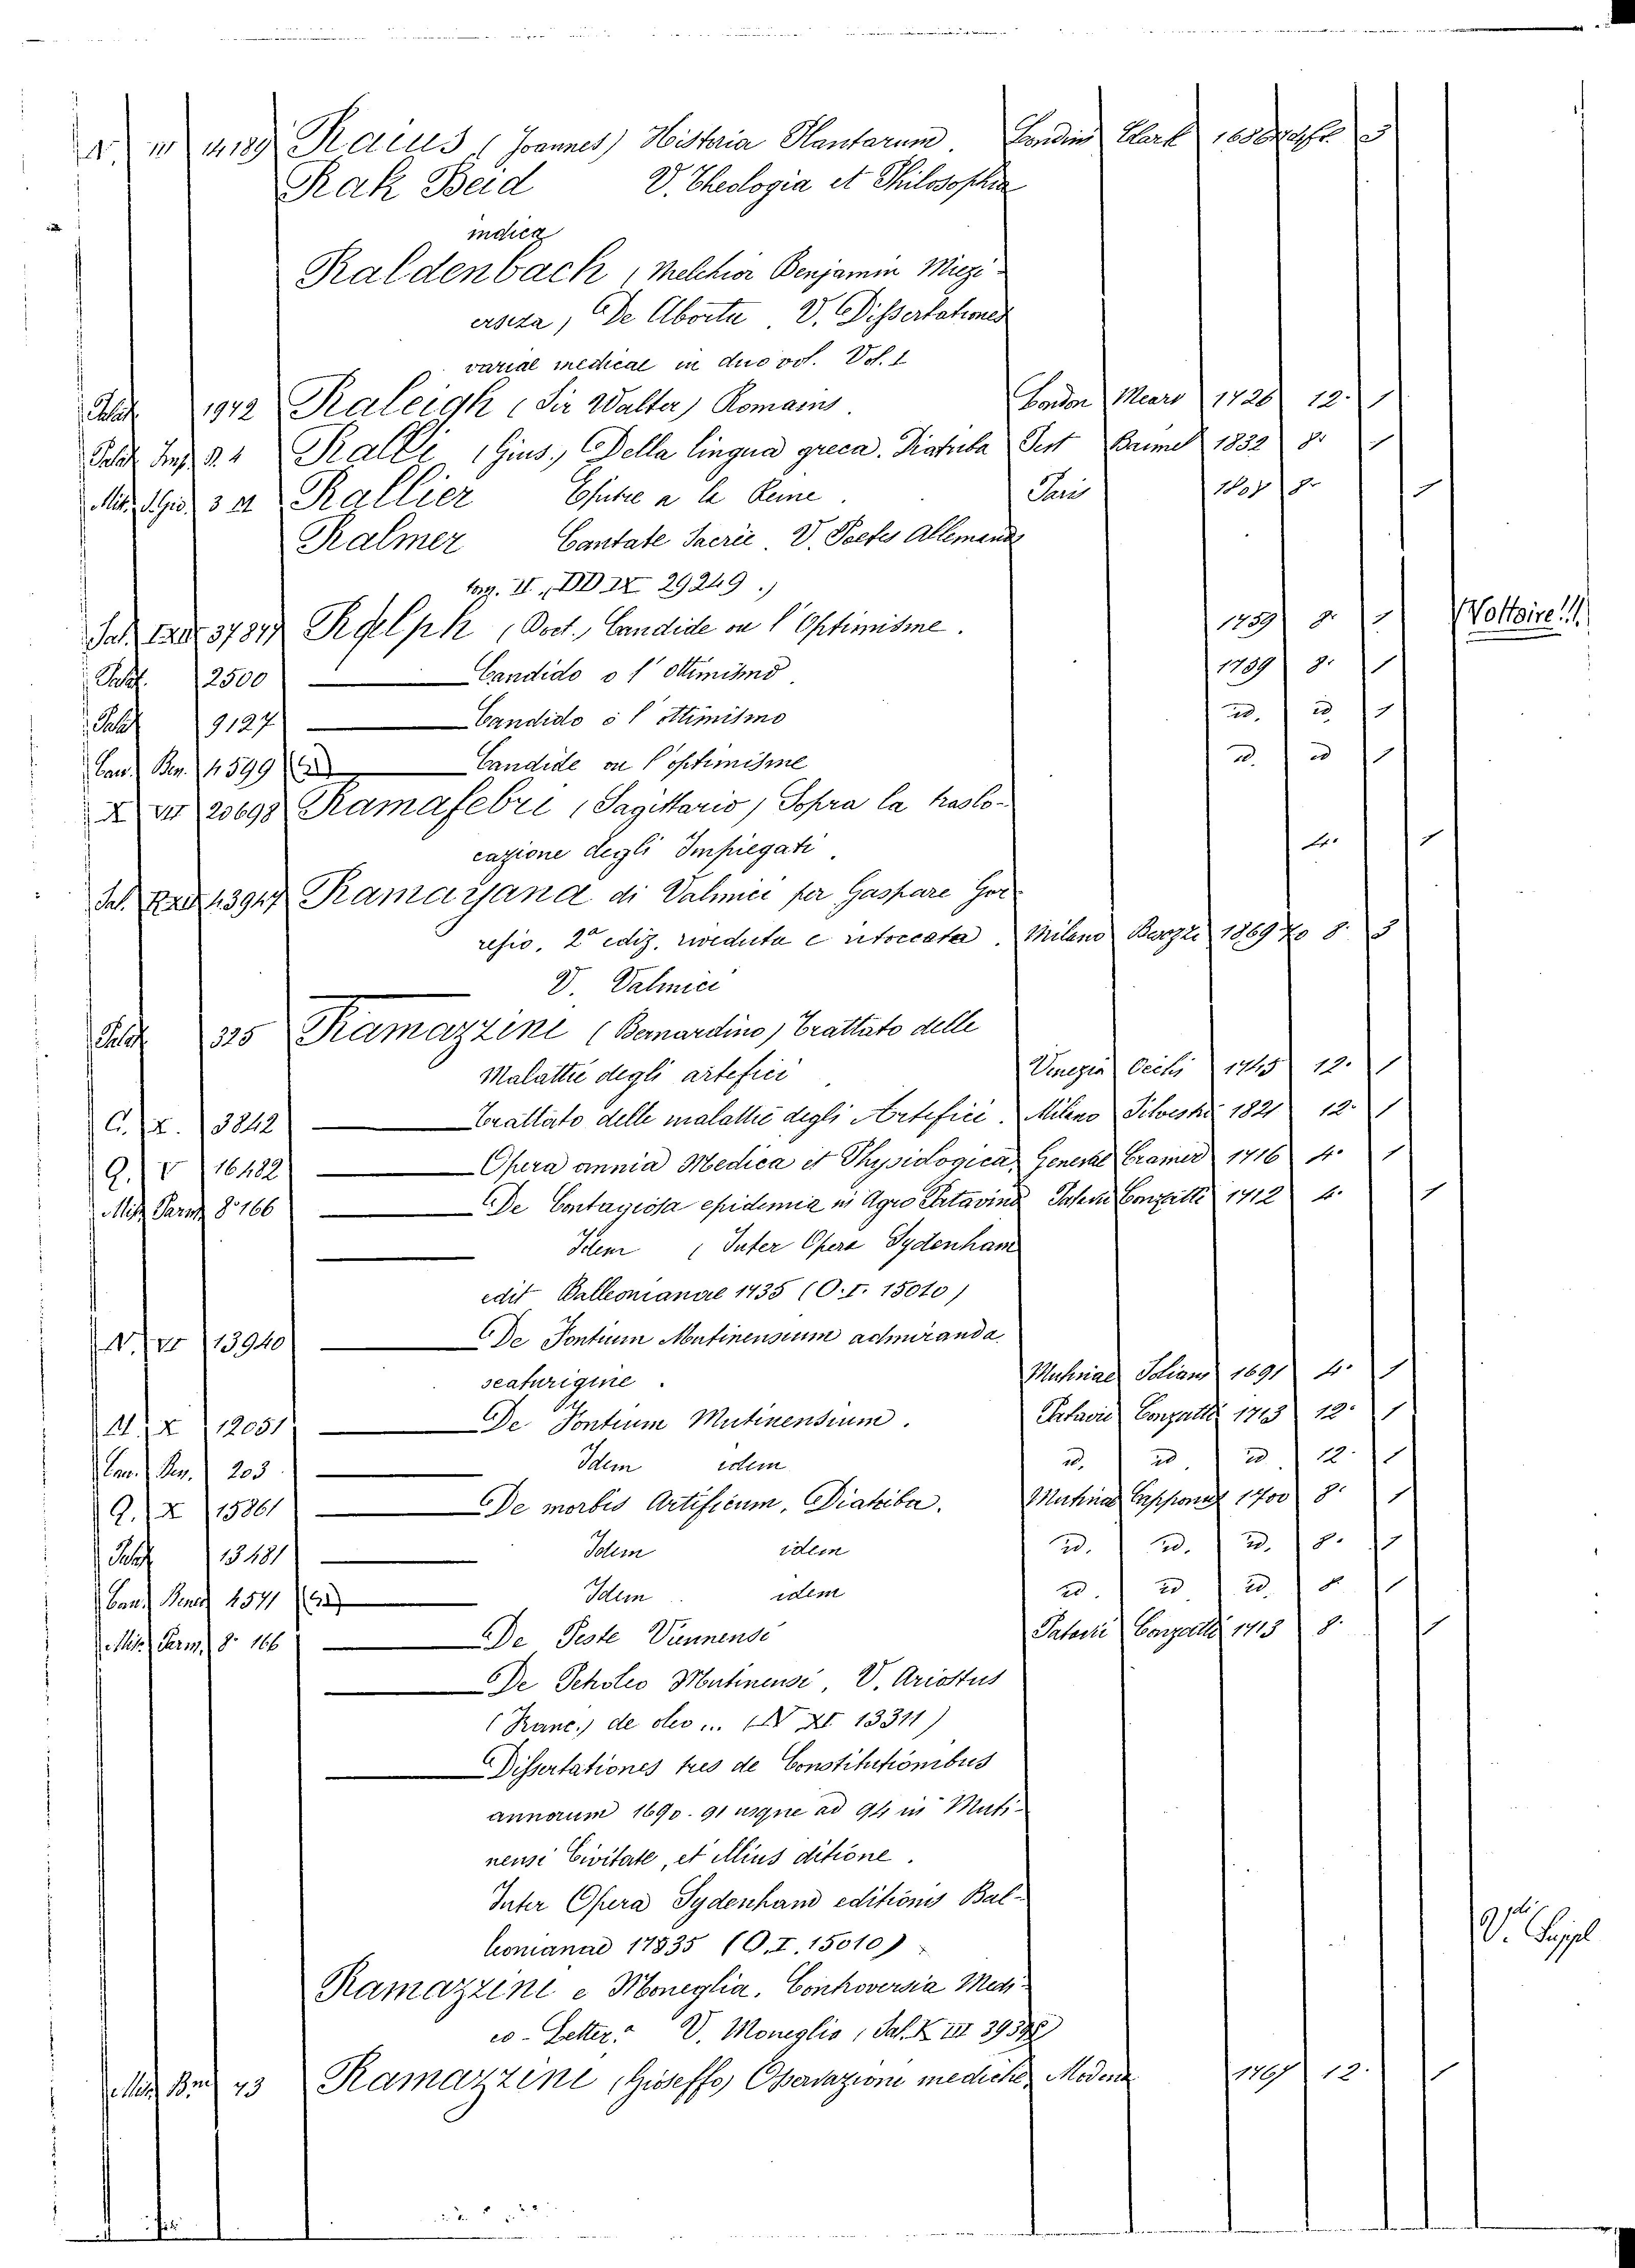 N. III 4189 Raius (Joannes) Historia Plantarum. Londini Clark 1686 fol. 3
Rak Beid V. Theologia et Philosophia
indica
Raldenbach (Melchior Benjamin
De Abortu. V. Dissertationes
variae medicae in duo vol. Vol. 1
Palat. 1942 Raleigh (Sir Walter) Romains. London Mears 1726 12. 1
Palat. 9.1 Ralli (Gius.) Della lingua greca. Diatriba Pest 1832 8. 1
Misc. 3 21 Rallier Epitre a la Reine. Paris 1808 8. 1
Ralmer Cantate Sacrée. V. Poetes Allemands
DD IX 29249.)
Sal. 37817 Ralph (Doct.) Candide ou l'Optimisme. 1759 8. 1 Voltaire!!!
Palat. 2500 Candido o l'ottimismo. 1759 8. 1
Palat. 9127 Candido o l'ottimismo id. id. 1
Can. Ben. 4599 Candide ou l'optimisme id. id 1
X VII 20698 Ramafebri (Sagittario) Sopra la traslo-
cazione degli Impiegati. 4. 1
Sal. 43947 Ramayana di Valmici per Gaspare Gor-
resio. 2ª ediz. riveduta e ritoccata. Milano 1869 70 8. 3
V. Valmici
Palat. 325 Ramazzini (Bernardino) Trattato delle
Malattie degli artefici Venezia Occhi 1745 12. 1
C. X. 3842 Trattato delle malattie degli Artefici. Milano Silvestri 1821 12. 1
Q. V 16482 Opera omnia Medica et Physiologica. Genevae Cramer 1716 4. 1
Misc. Parm. 8° 166 De Contagiosa epidemia in Agro Patavino Patavii Conzatti 1712 4. 1
Idem (Inter Opera Sydenham
edit Balleonianae 1735 (O. I. 15010)
N. VI 13940 De Fontium Mutinensium admiranda
scaturigine. Mutinae Soliani 1691 4. 1
M. X 12051 De Fontium Mutinensium. Patavii Conzatti 1713 12. 1
Can. Ben. 203 Idem idem id. id. id 12. 1
Q. X 15861 De morbis Artificum. Diatriba. Mutinae Capponi 1700 8. 1
Palat. 13481 Idem idem id. id. id. 8. 1
Can. Bened 4571 Idem idem id. id id. 8. 1
Misc. Parm. 8° 166 De Peste Viennensi Patavii Conzatti 1713 8. 1
De Petroleo Mutinensi, V. Ariostus
(Franc.) de oleo ... (N XI 13311)
Dissertationes tres de Constitutionibus
annorum 1690. 91 usque ad 94 in Muti-
nensi Civitate, et illius ditione.
Inter Opera Sydenham editionis Bal-
leonianae 17835 (O. I. 15010)
V. Suppl
Ramazzini e Moneglia. Controversia Medi-
co-Letter.ª V. Moneglia (Sal. K III 39598)
Misc. Ben. 43 Ramazzini (Gioseffo) Osservazione mediche. Modena 1767 12. 1